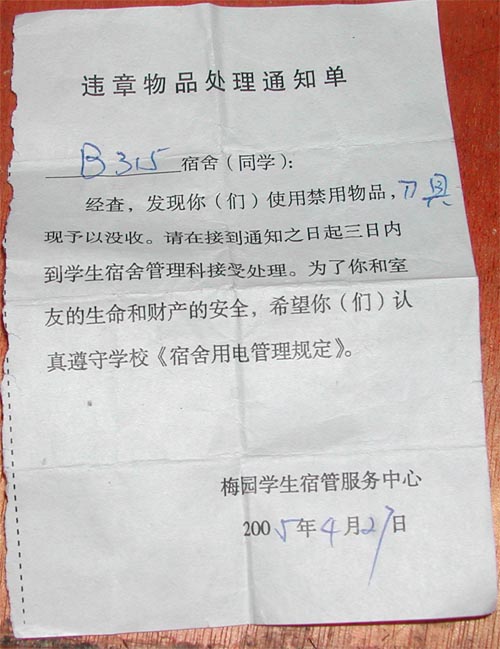 违章物品处理通知单
B315宿舍（同学）：
经查，发现你（们）使用禁用物品，刀具
现予以没收。请在接到通知之日起三日内
到学生宿舍管理科接受处理。为了你和室
友的生命和财产的安全，希望你（们）认
真遵守学校《宿舍用电管理规定》。
梅园学生宿管服务中心
2005年4月27日